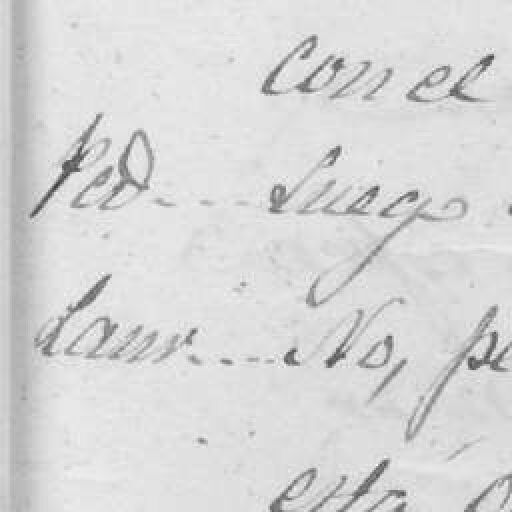 con el
Ped.... Luego
Laur.... No, pe
esta